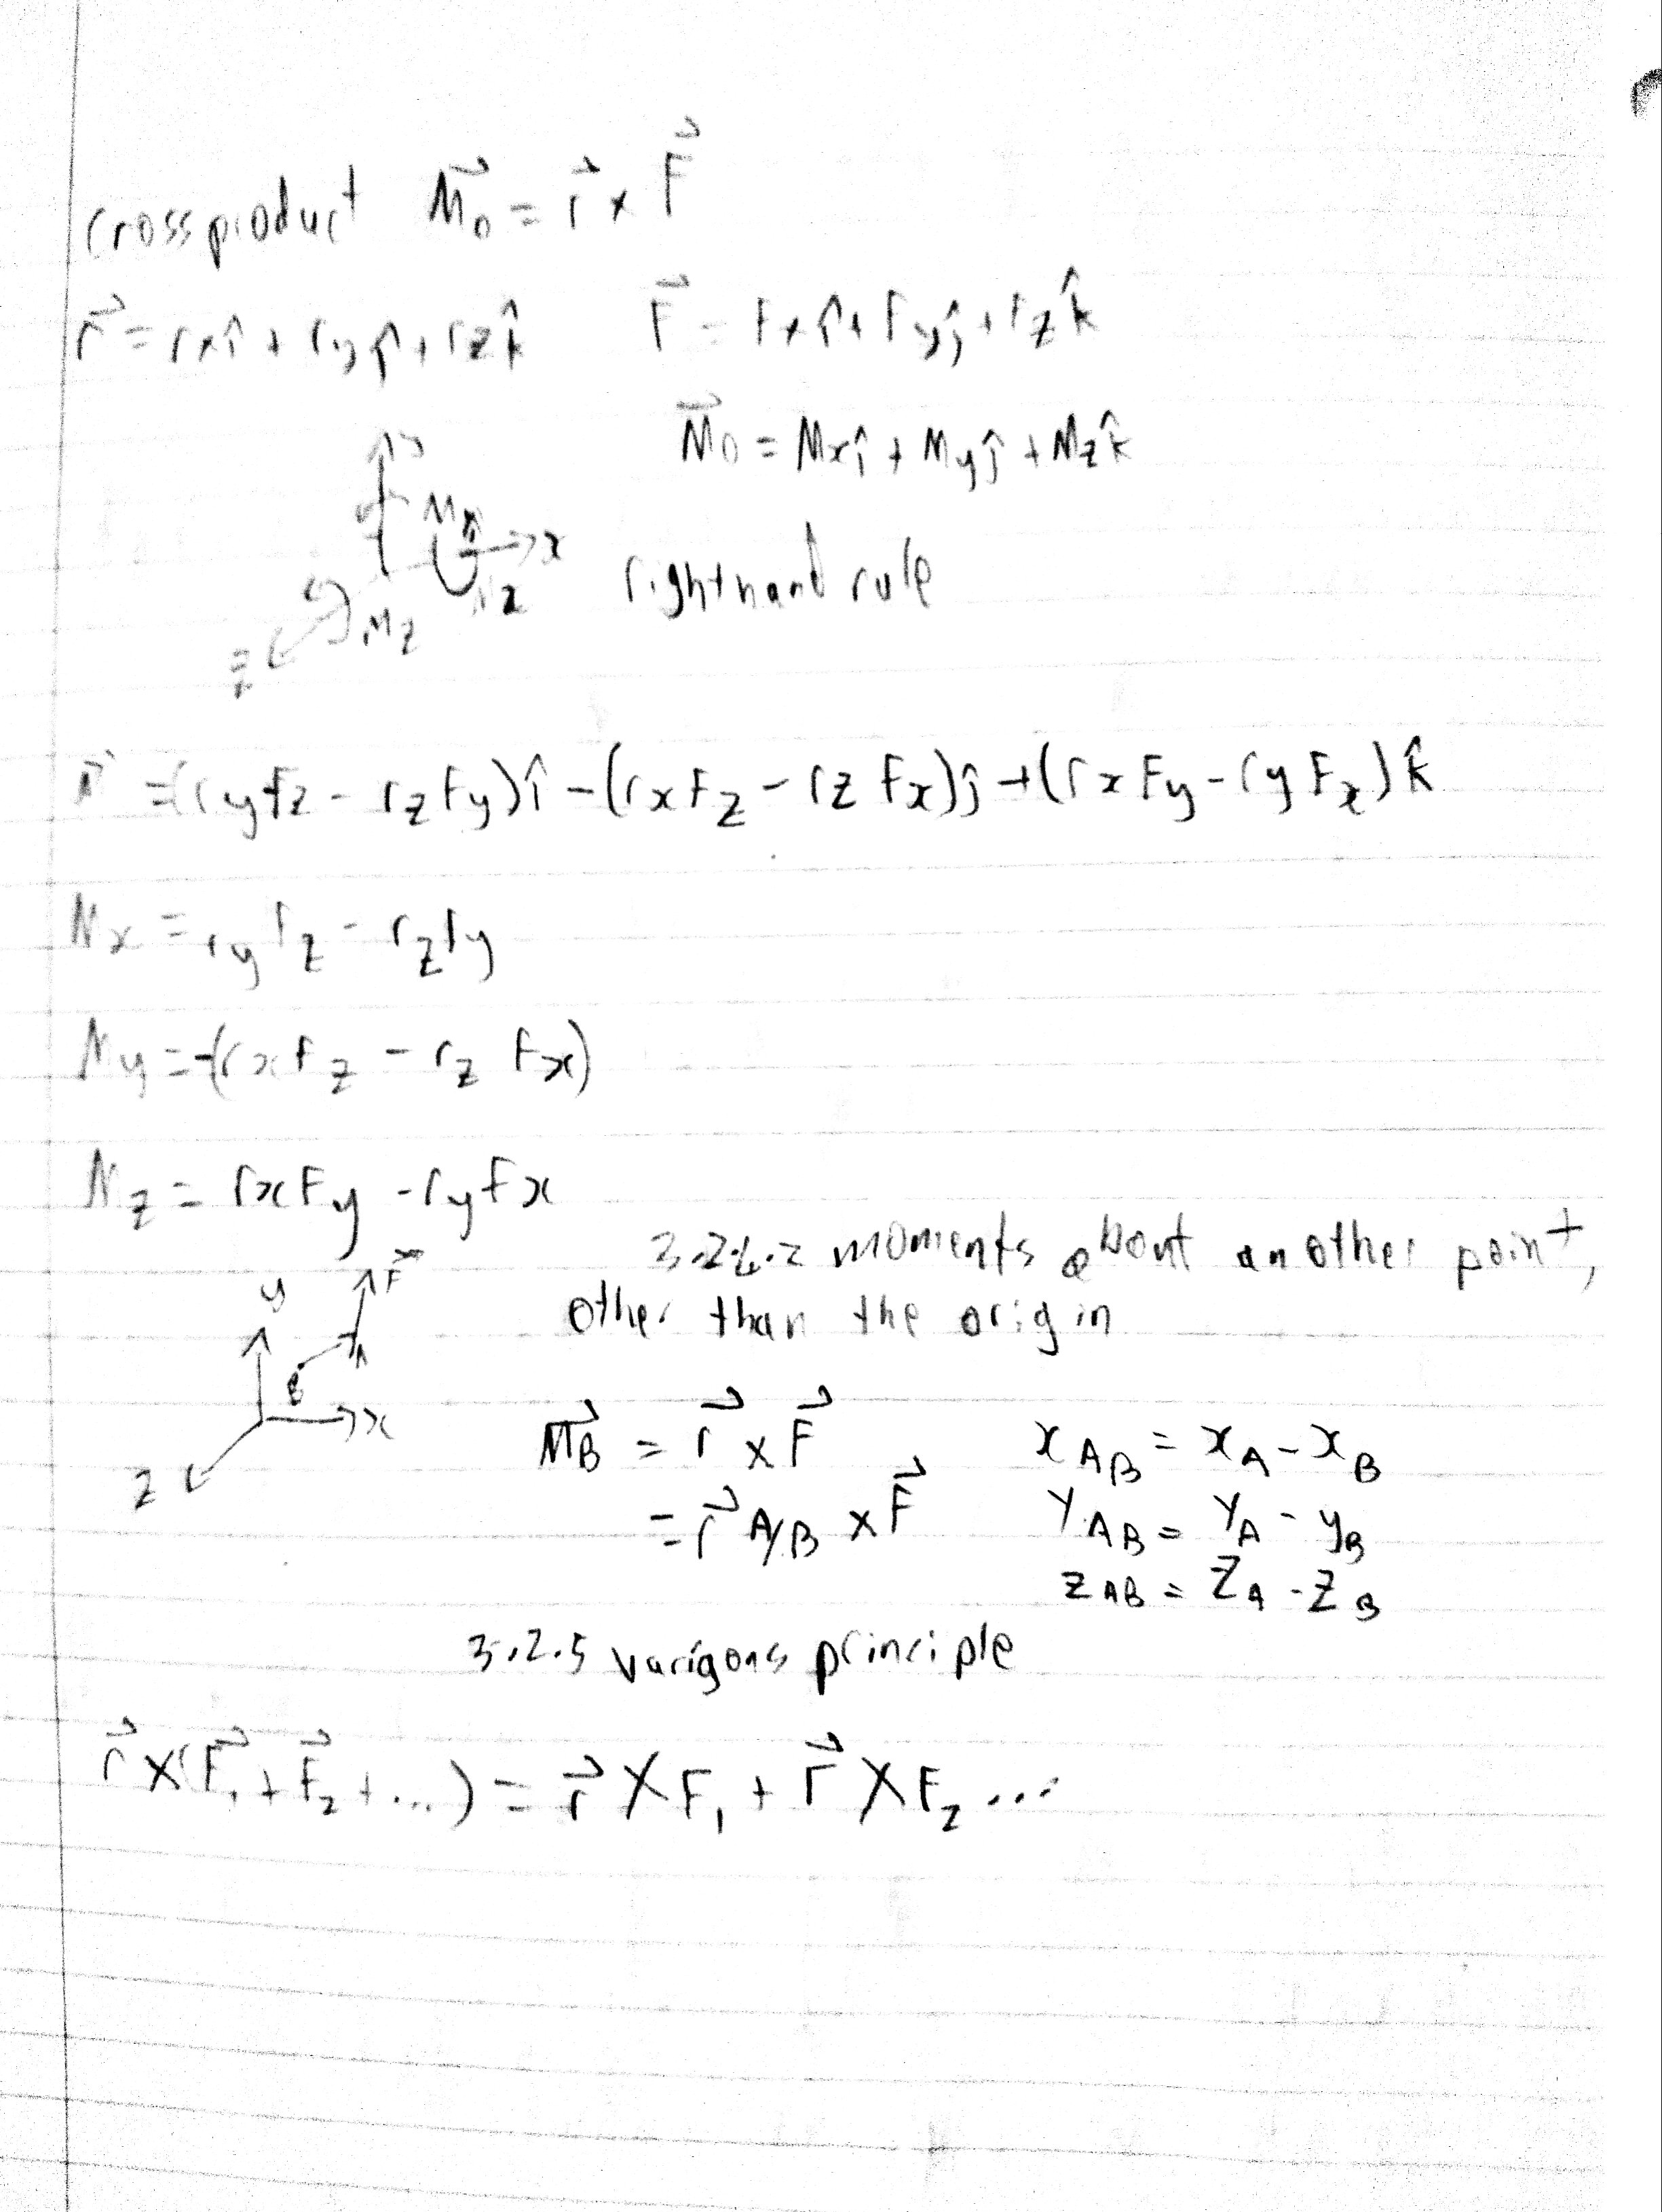 cross product M⃗o = r⃗ x F⃗
r⃗ = rxî + ryĵ + rzk̂
F⃗ = Fxî + Fyĵ + Fzk̂
M⃗o = Mxî + Myĵ + Mzk̂
Mx
x
right hand rule
Mz
z
= (ryFz - rzFy)î - (rxFz - rzFx)ĵ + (rxFy - ryFx)k̂
Mx = ryFz - rzFy
My = -(rxFz - rz Fx)
Mz = rxFy - ryFx
3.2.4.2 moments about another point,
other than the origin
y
F⃗
A
B
x
z
M⃗B = r⃗ x F⃗
= r⃗ A/B x F⃗
xAB = xA - xB
yAB = yA - yB
zAB = zA - zB
3.2.5 varigons principle
r⃗ x (F⃗1 + F⃗2 + ...) = r⃗ x F1 + r⃗ x F2 ...